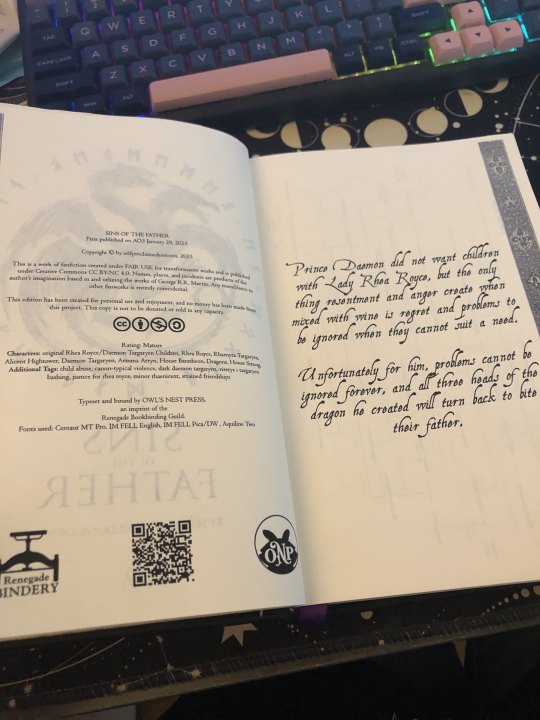 TAB
Q
W
E
R
T
Y
CAPSLOCK
A
S
D
F
G
H
J
K
L
SHIFT
Z
X
C
V
B
N
M
SHIFT
WIN
ALT
ALT
FN
CTRL
SINS OF THE FATHER
First published on AO3 January 29, 2023
Copyright © by selfproclaimedunicorn, 2023
This is a work of fanfiction created under FAIR USE for transformative works and is published
under Creative Commons CC BY-NC 4.0. Names, places, and incidents are products of the
author's imagination based in and utilizing the works of George R.R. Martin. Any resemblance to
other fanworks is entirely coincidental.
This edition has been created for personal use and enjoyment, and no money has been made from
this project. This copy is not to be donated or sold in any capacity.
Rating: Mature
Characters: original Rhea Royce/Daemon Targaryen Children, Rhea Royce, Rhaenyra Targaryen,
Alicent Hightower, Daemon Targaryen, Aemma Arryn, House Baratheon, Dragons, House Strong,
Additional Tags: child abuse, canon-typical violence, dark daemon targaryen, viserys i targaryen
bashing, justice for rhea royce, minor rhaenicent, strained friendships
Typeset and bound by OWL'S NEST PRESS,
an imprint of the
Renegade Bookbinding Guild.
Fonts used: Centaur MT Pro, IM FELL English, IM FELL Pica/DW, Aquiline Two
SINS
OF THE
FATHER
Renegade
BINDERY
ONP
Prince Daemon did not want children
with Lady Rhea Royce, but the only
thing resentment and anger create when
mixed with wine is regret and problems to
be ignored when they cannot suit a need.
Unfortunately for him, problems cannot be
ignored forever, and all three heads of the
dragon he created will turn back to bite
their father.